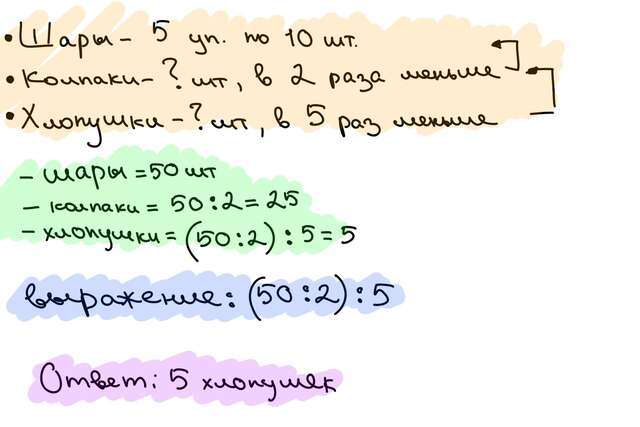 • Шары – 5 уп. по 10 шт.
• Колпаки – ? шт, в 2 раза меньше
• Хлопушки – ? шт, в 5 раз меньше
– шары = 50 шт
– колпаки = 50 : 2 = 25
– хлопушки = (50 : 2) : 5 = 5
выражение: (50 : 2) : 5
Ответ: 5 хлопушек